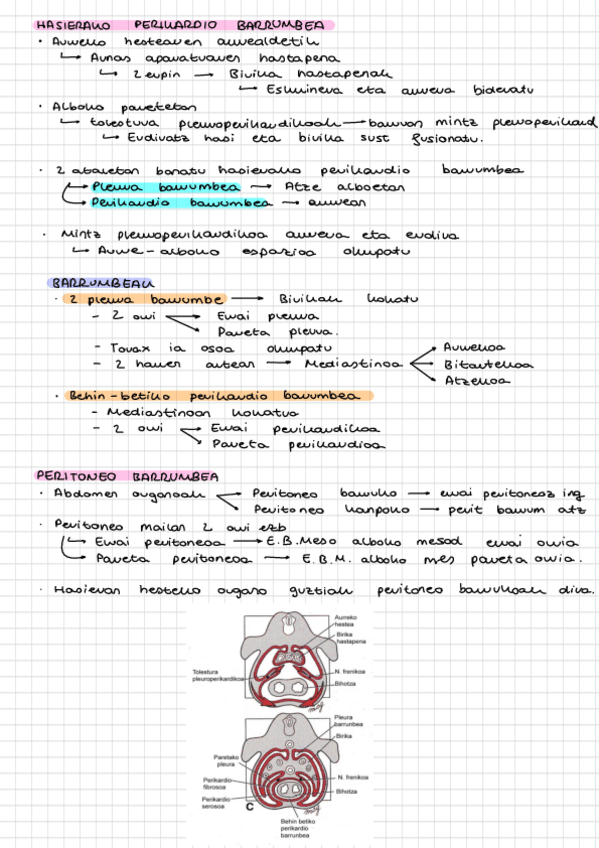 HASIERAKO PERIKARDIO BARRUNBEA
· Aurreko hestearen aurrealdetik
↳ Arnas aparatuaren hastapena
↳ 2 enpin → Birika hastapenak
↳ Eskuinera eta aurrera bideratu
· Alboko paretetan
↳ tolestura pleuroperikardikoak → barruan mintz pleuroperikard
↳ Erdiratz hasi eta birika sust fusionatu.
· 2 ataletan banatu hasierako perikardio barrunbea
↳ Pleura barrunbea → Atze alboetan
↳ Perikardio barrunbea → aurrean
· Mintz pleuroperikardikoa aurrera eta erdira
↳ Aurre-alboko espazioa okupatu
BARRUNBEAK
· 2 pleura barrunbe → Birikak kokatu
- 2 orri → Errai pleura
→ Pareta pleura.
- Torax ia osoa okupatu
- 2 hauen artean → Mediastinoa → Aurrekoa
→ Bitartekoa
→ Atzekoa
· Behin-betiko perikardio barrunbea
- Mediastinoan kokatua
- 2 orri → Errai perikardikoa
→ Pareta perikardioa
PERITONEO BARRUNBEA
· Abdomen organoak → Peritoneo barruko → errai peritoneoz ing
→ Peritoneo kanpoko → perit barrun atz
· Peritoneo mailan 2 orri ezb
↳ Errai peritoneoa → E.B.Meso alboko mesod errai orria
↳ Pareta peritoneoa → E.B.M. alboko mes pareta orria.
· Hasieran hesteko organo guztiak peritoneo barrukoak dira.
Aurreko hestea
Birika hastapena
Tolestura pleuroperikardikoa
N. frenikoa
Bihotza
Pleura barrunbea
Birika
Paretako pleura
N. frenikoa
Perikardio fibrosoa
Bihotza
Perikardio serosoa
C
Behin betiko perikardio barrunbea